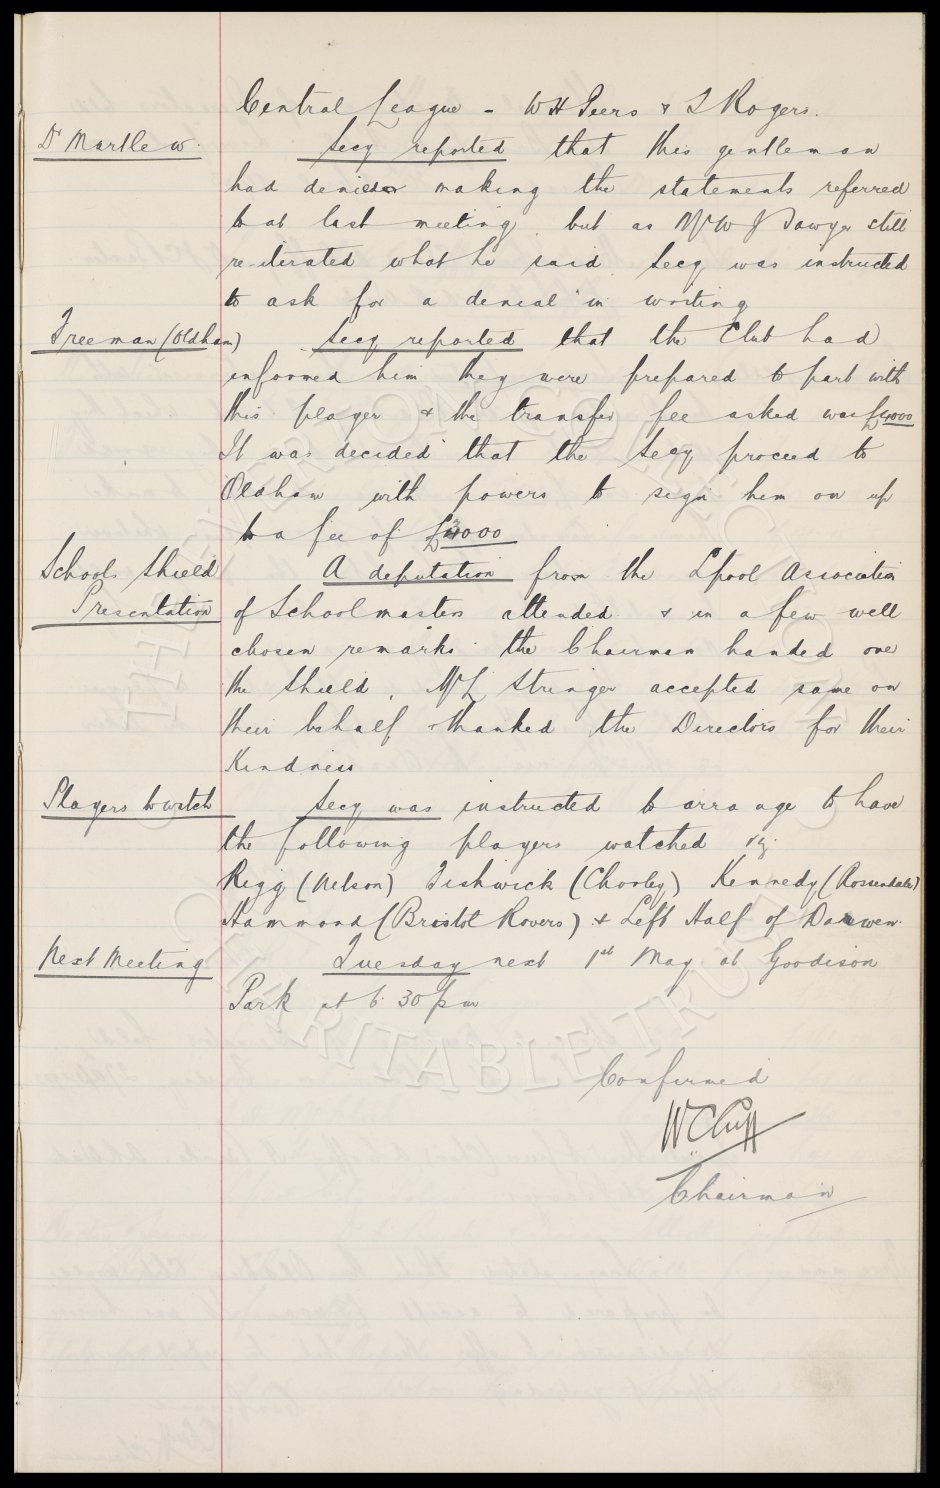 Central League - W H Peers & T Rogers.
Dr Martlew. Secy reported that this gentleman
had denied making the statements referred
to at last meeting, but as Mr W J Sawyer still
re-iterated what he said Secy was instructed
to ask for a denial in writing
Freeman (Oldham) Secy reported that the Club had
informed him they were prepared to part with
this player & the transfer fee asked was £4000
It was decided that the Secy proceed to
Oldham with powers to sign him on up
to a fee of
Schools Shield A deputation from the Lpool Association
Presentation of Schoolmasters attended & in a few well
chosen remarks the Chairman handed over
the Shield, Mr L Stringer accepted same on
their behalf & thanked the Directors for their
Kindness
Players to watch Secy was instructed to arrange to have
the following players watched viz.
Rigg (Nelson) Fishwick (Chorley) Kennedy (Rossendale)
Hammond (Bristol Rovers) & Left Half of Darwen.
Next Meeting Tuesday next 1st May at Goodison
Park at 6.30 pm
Confirmed
W C Cuff
Chairman
CHARITABLE TRUST